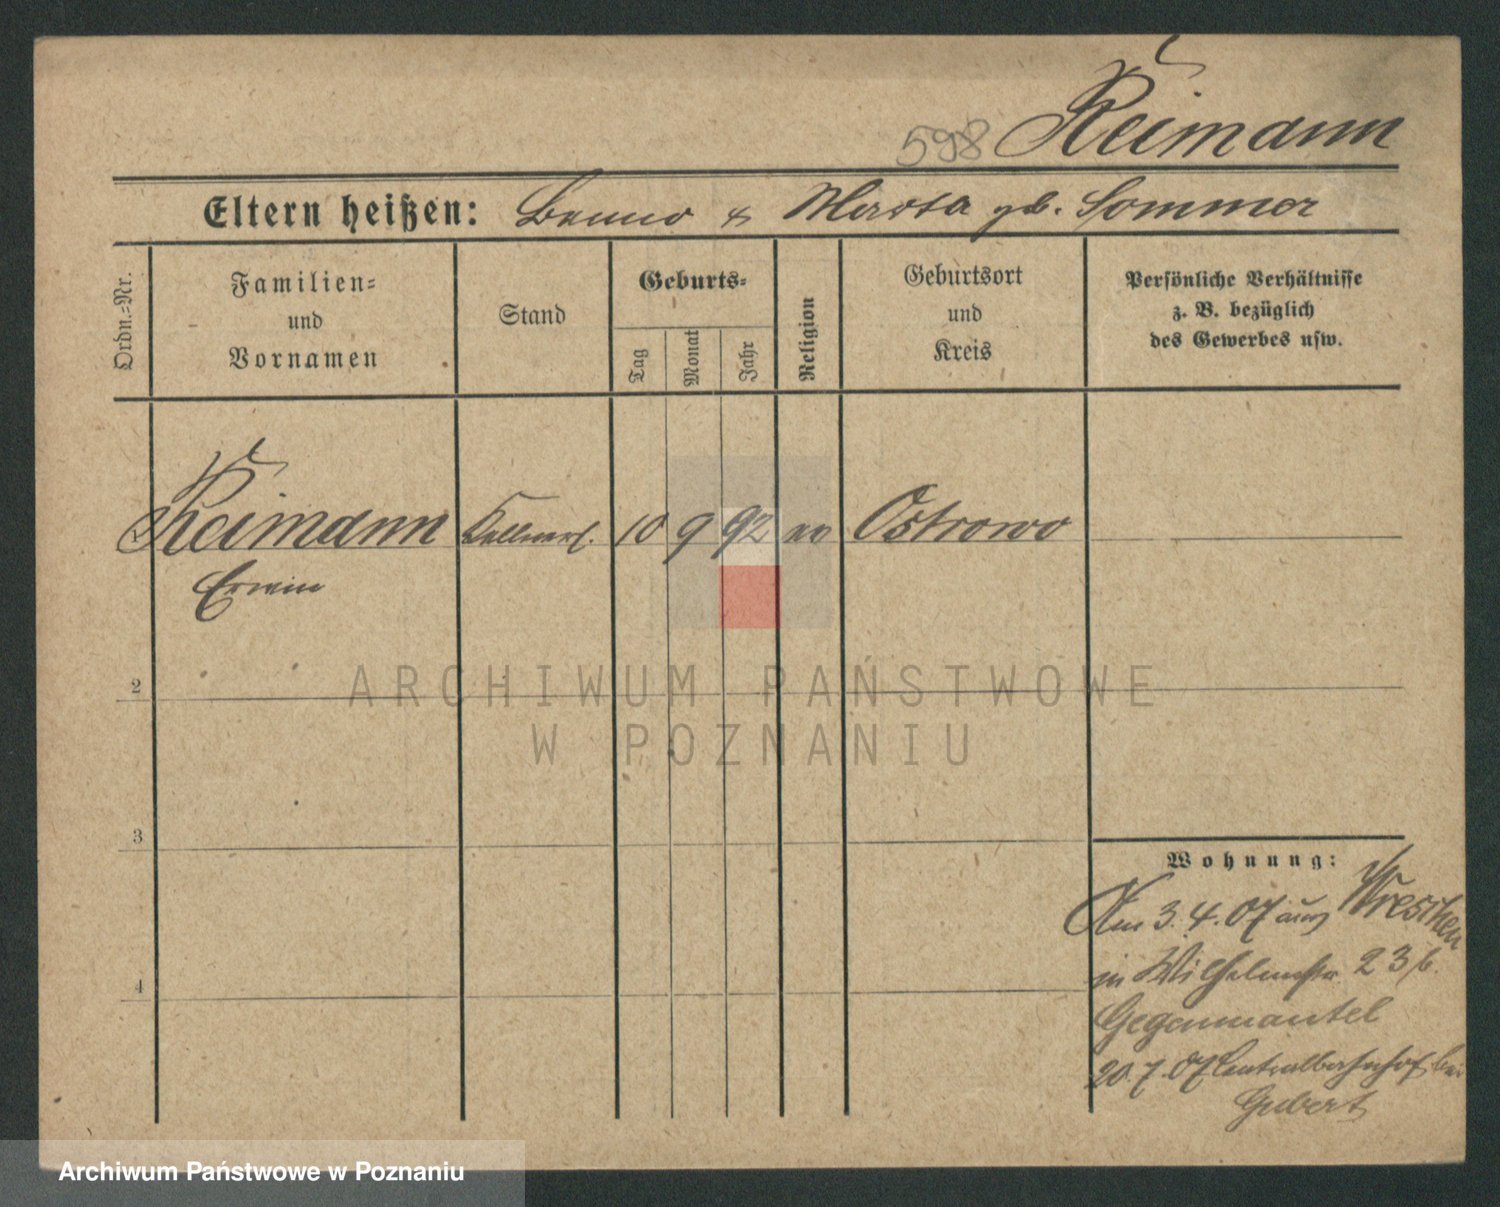 598 Reimann
Eltern heißen: Benno & Marta gb. Sommer
Ordn.-Nr.
Familien-
und
Vornamen
Stand
Geburts-
Tag
Monat
Jahr
Religion
Geburtsort
und
Kreis
Persönliche Verhältnisse
z. B. bezüglich
des Gewerbes usw.
Reimann Kellnerl. 10 9 92 Ostrowo
Erwin
2
3
4
Wohnung:
Am 3. 4. 07 aus Wreschen
in Wilhelmstr. 23 b.
Gegenmantel
20. 7. 07 Centralbahnhof bei
Gubert
ARCHIWUM PAŃSTWOWE
W POZNANIU
Archiwum Państwowe w Poznaniu